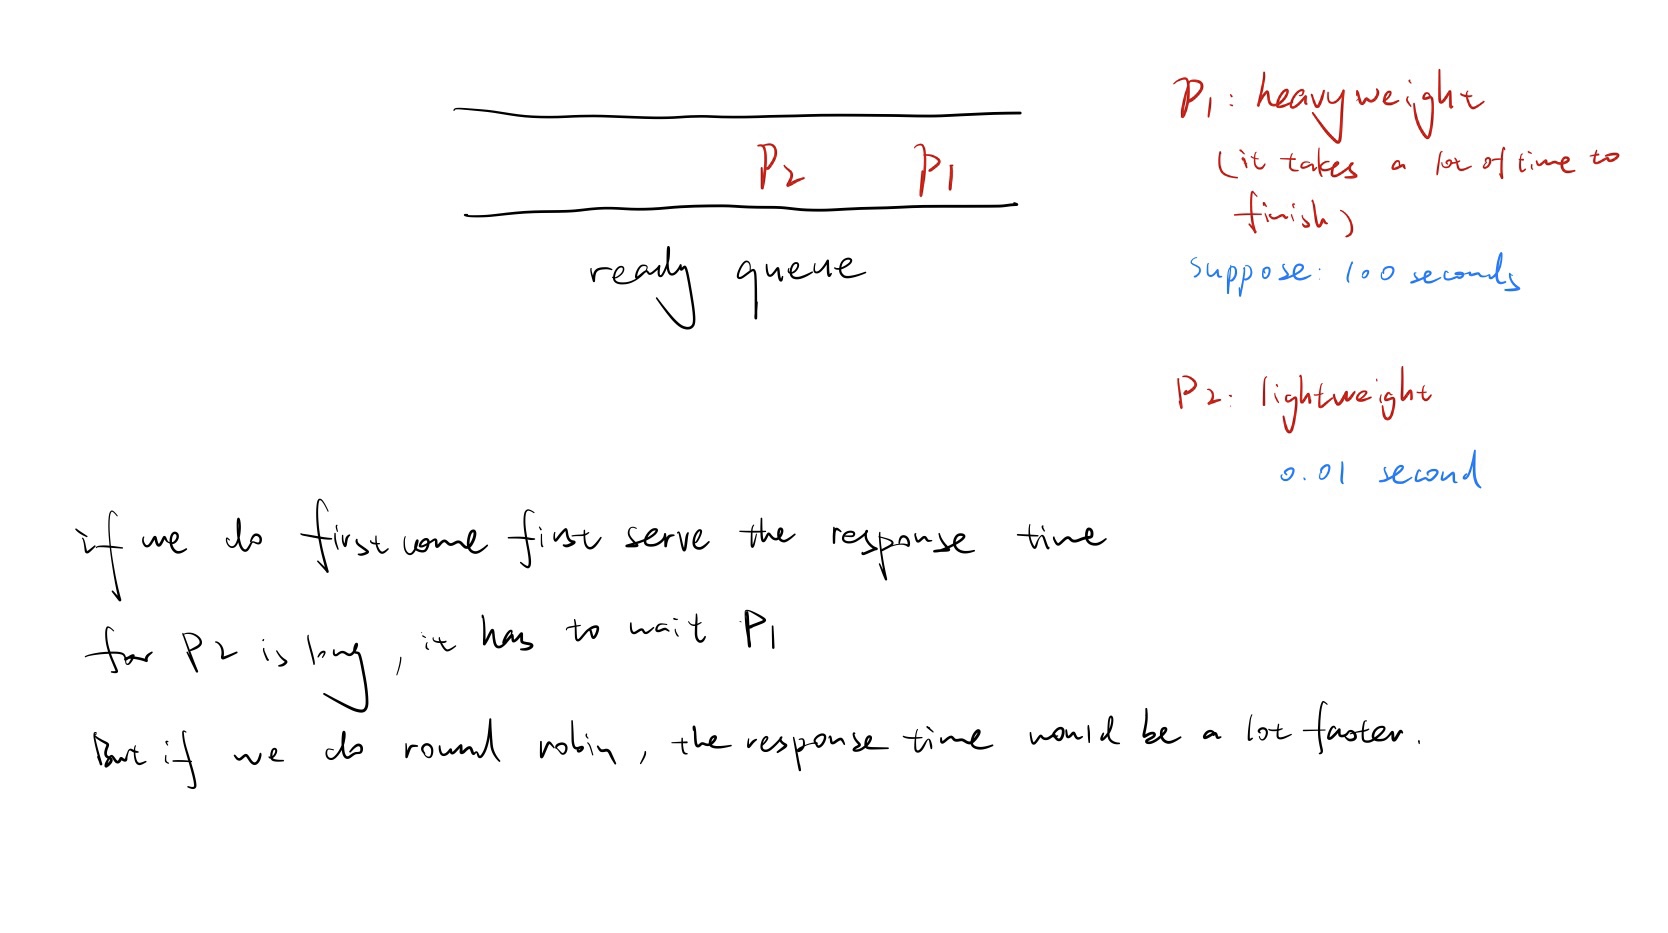 P1: heavyweight
(it takes a lot of time to
finish)
suppose: 100 seconds
P2 P1
ready queue
P2: lightweight
0.01 second
if we do first come first serve the response time
for P2 is long, it has to wait P1
But if we do round robin, the response time would be a lot faster.